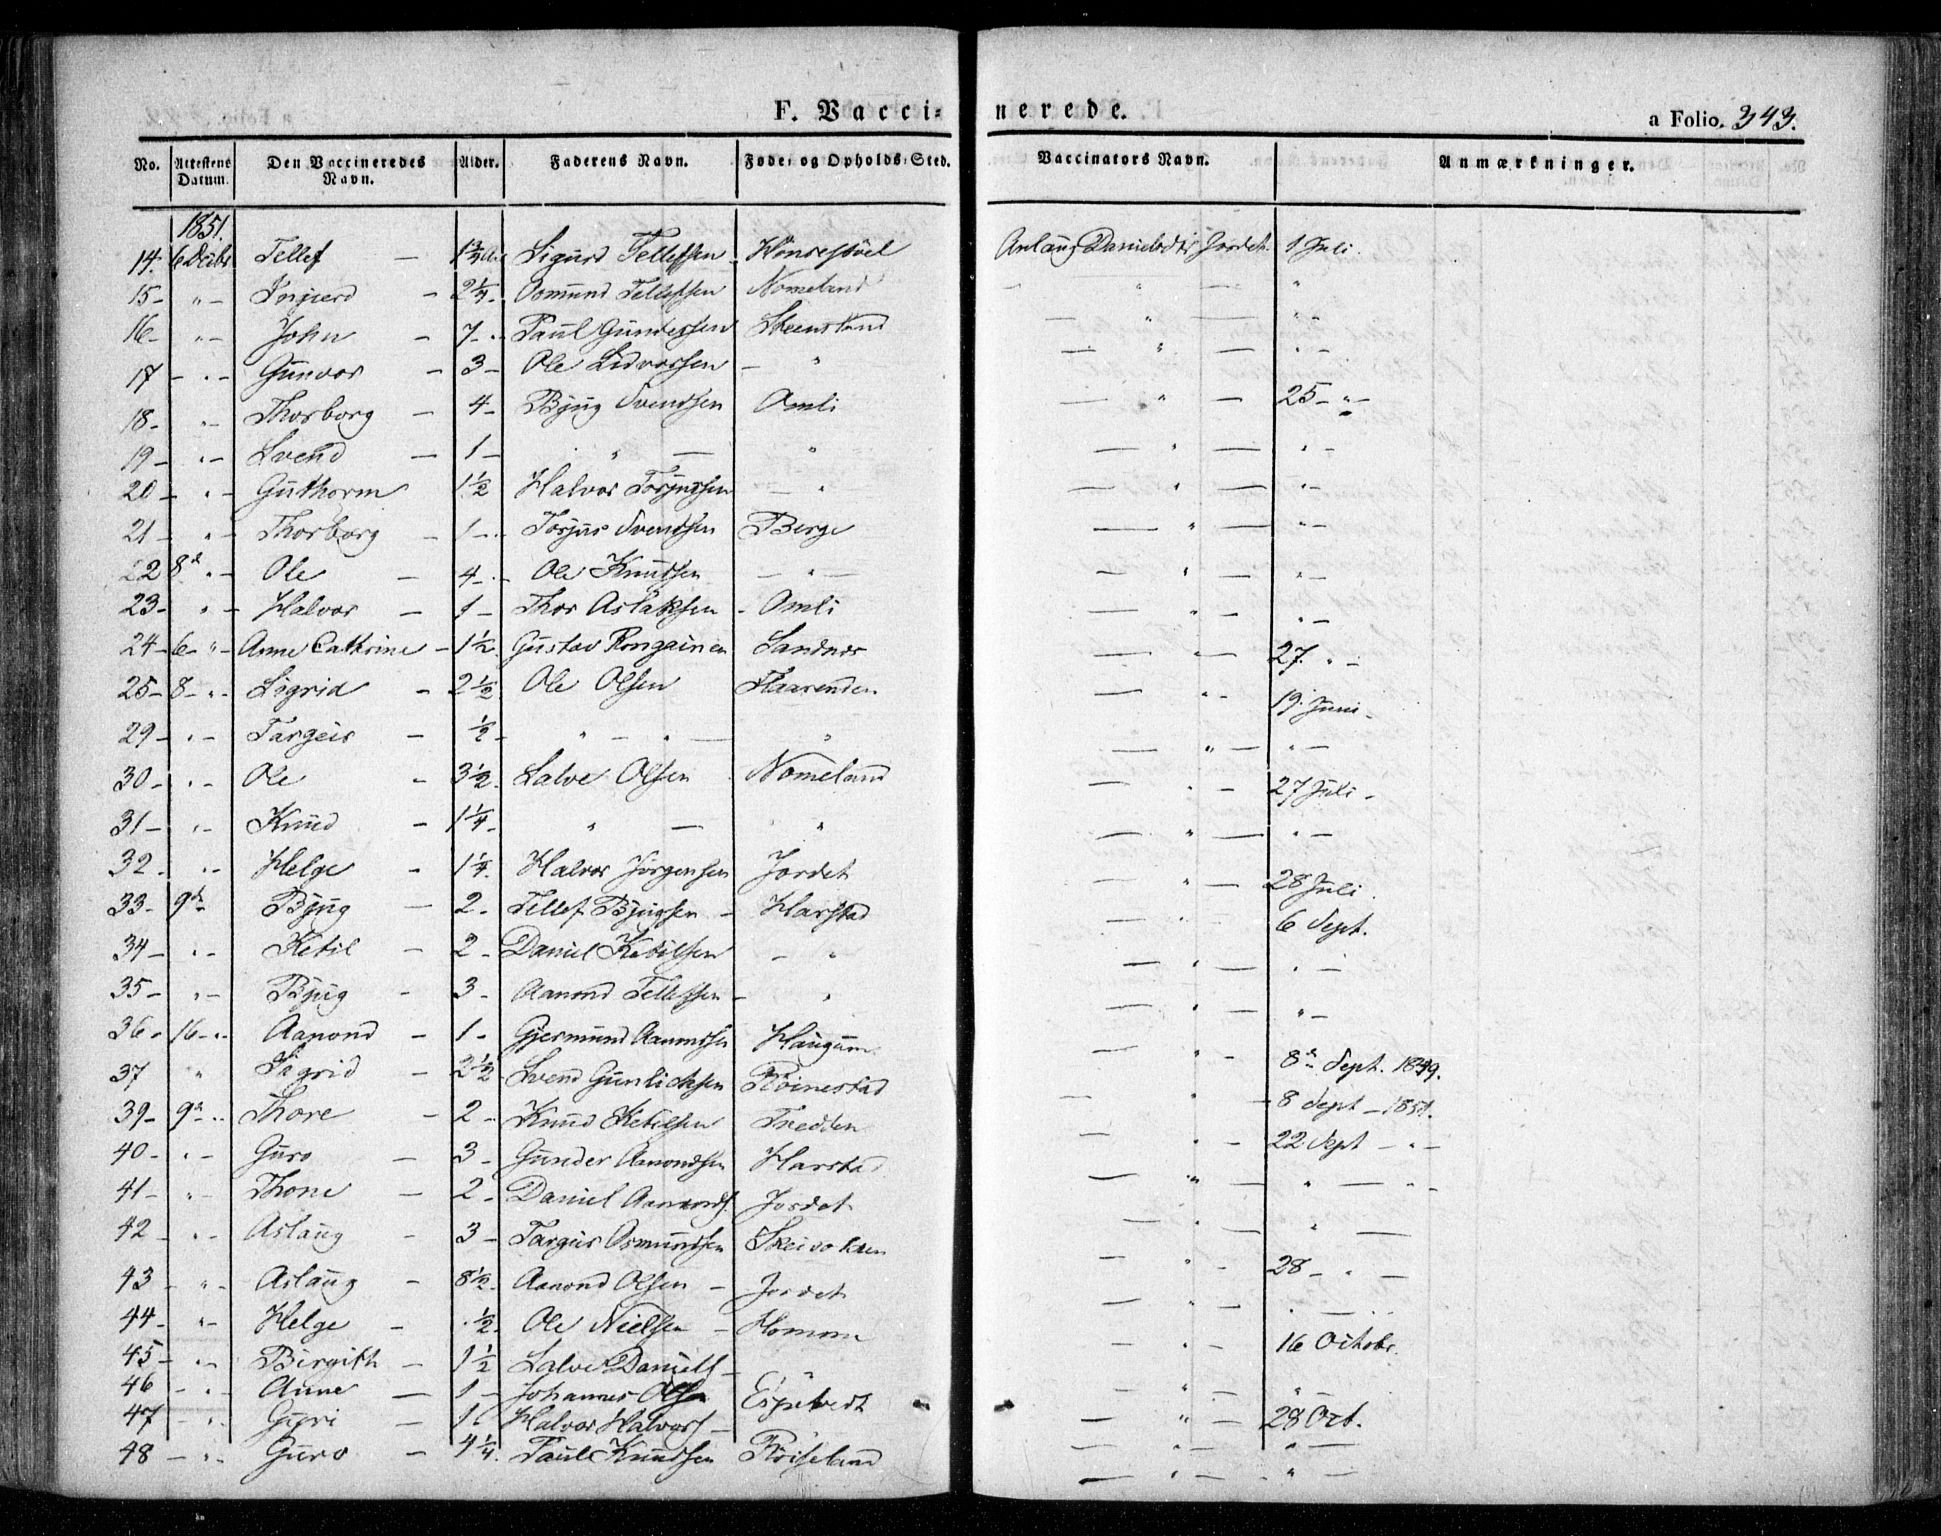 F. Vaccinerede.
a Folio. 343.
No. | Attestens Datum. | Den Vaccineredes Navn. | Alder. | Faderens Navn. | Føde- og Opholds-Sted. | Vaccinators Navn. | Anmærkninger.
1851.
14. 6 Decbr Tellef — Sigurd Tellefsen Danielsdtr Jordet. 1 Juli.
15 - " - - 2 1/4 - Osmund Tellefsen Nomeland — " — "
16 - " - John - 7 - Paul Gundersen — " — " -
17 - " - Gunvor - 3 - Ole Lidvorsen - " — " — " -
18 - " - Thorborg - 4 - Bjug Svendsen Omli — " — 25 - " -
19 - " - Svend - 1 - " — " — " — " -
20 - " - Guthorm 1 1/2 Halvor Torjussen - " — " — " -
21 - " - Thorborg - 1 - Torjus Svendsen Berge — " — " -
22 8d " - Ole - 4 - Ole Knudsen — " — — " — " -
23 - " - Halvor - 1 - Thor Aslaksen - Omli — " — " -
24 - 6 - " - Anne Cathrine - 1 1/2 Gustav Rongainen Sandnes — " — 27. " -
25 - 8 - " - Sigrid - 2 1/2 Ole Olsen Haarenden — " - 19. Juni -
29 - " - Targeir - 1/2 - " — " — " — " — " -
30 - " - Ole - 3 1/2 - Salve Olsen Nomeland — " - 27 Juli -
31 - " - Knud - 1 1/4 - " — " — " — " -
32. " - Helge - 1 1/4. Halvor Jörgensen Jordet — " — 28 Juli.
33 - 9de Bjug - 2 - Tellef Bjugsen - Harstad — " 6 Sept.
34 - " - Ketil - 2 - Daniel Ketilsen - " — " — " -
35 - " - Bjug - 3 - Aanond Tellefsen - " — " — " -
36 - 16 - " Aanond - 1 - Gjermund Aanondsen Haugum — " - 8de Sept. 1849.
37 " Sigrid - 2 1/2 Svend Röinestad — " - 8 Sept - 1851.
39 - 9de " Thore - 2 - Knud Ketilsen Tredden — " - 22 Sept - " -
40 - " - Guro - 3 - Gunder Aanondsen Harstad — " — " — " -
41 - " - Thone - 2 - Daniel Aanonds. Jordet — " — " —
42 - " - Aslaug - 3 - Targeir Osmundsen — " - 28 - " -
43 - " - Aslaug - 8 1/2 - Aanond Olsen - Jordet — " — " —
44 - " - Helge - 1/2 - Ole Nielsen - Homme — " - 16 Octobr.
45 - " - Birgith - 1 1/2 Salve Daniels - " — " — "
46 - " - Anne - 1 - Johannes Olsen Espetvedt — " — 28 Oct.
47 - " - Gyri - 1 Halvor Halvors - " — " — " -
48 - " - Guro - 4 1/4. Paul Knudsen Röiseland — " — " -